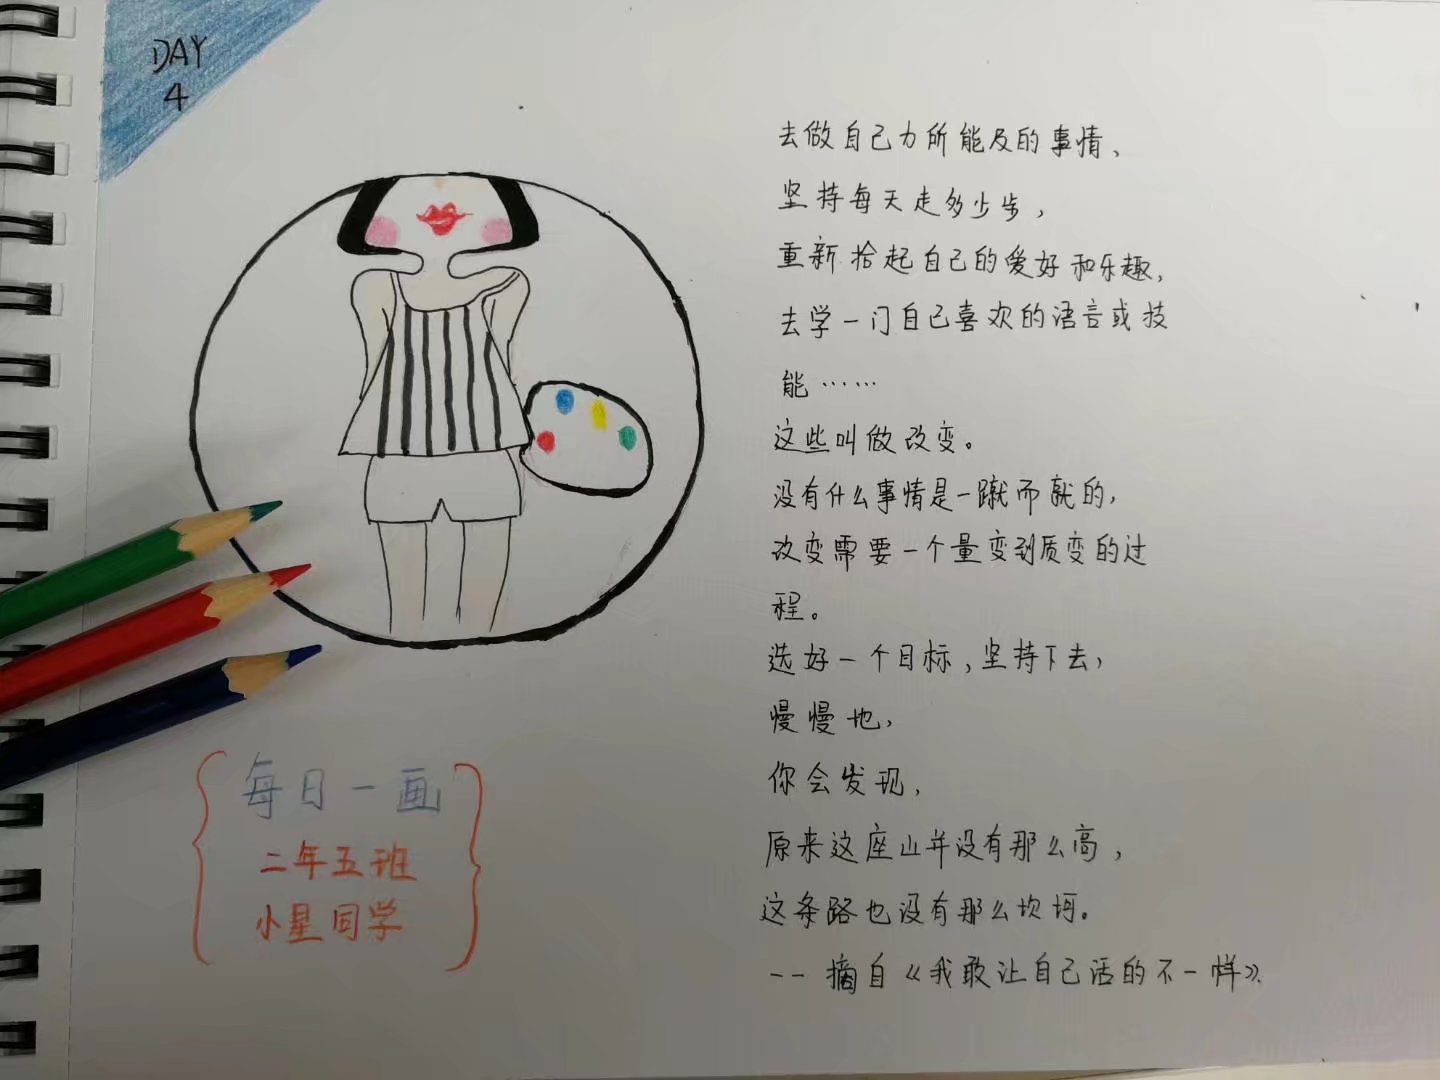 DAY
4
去做自己力所能及的事情、
坚持每天走多少步,
重新拾起自己的爱好和乐趣,
去学一门自己喜欢的语言或技
能……
这些叫做改变。
没有什么事情是一蹴而就的,
改变需要一个量变到质变的过
程。
选好一个目标,坚持下去,
慢慢地,
你会发现,
原来这座山并没有那么高,
这条路也没有那么坎坷。
--摘自《我敢让自己活的不一样》
每日一画
二年五班
小星同学